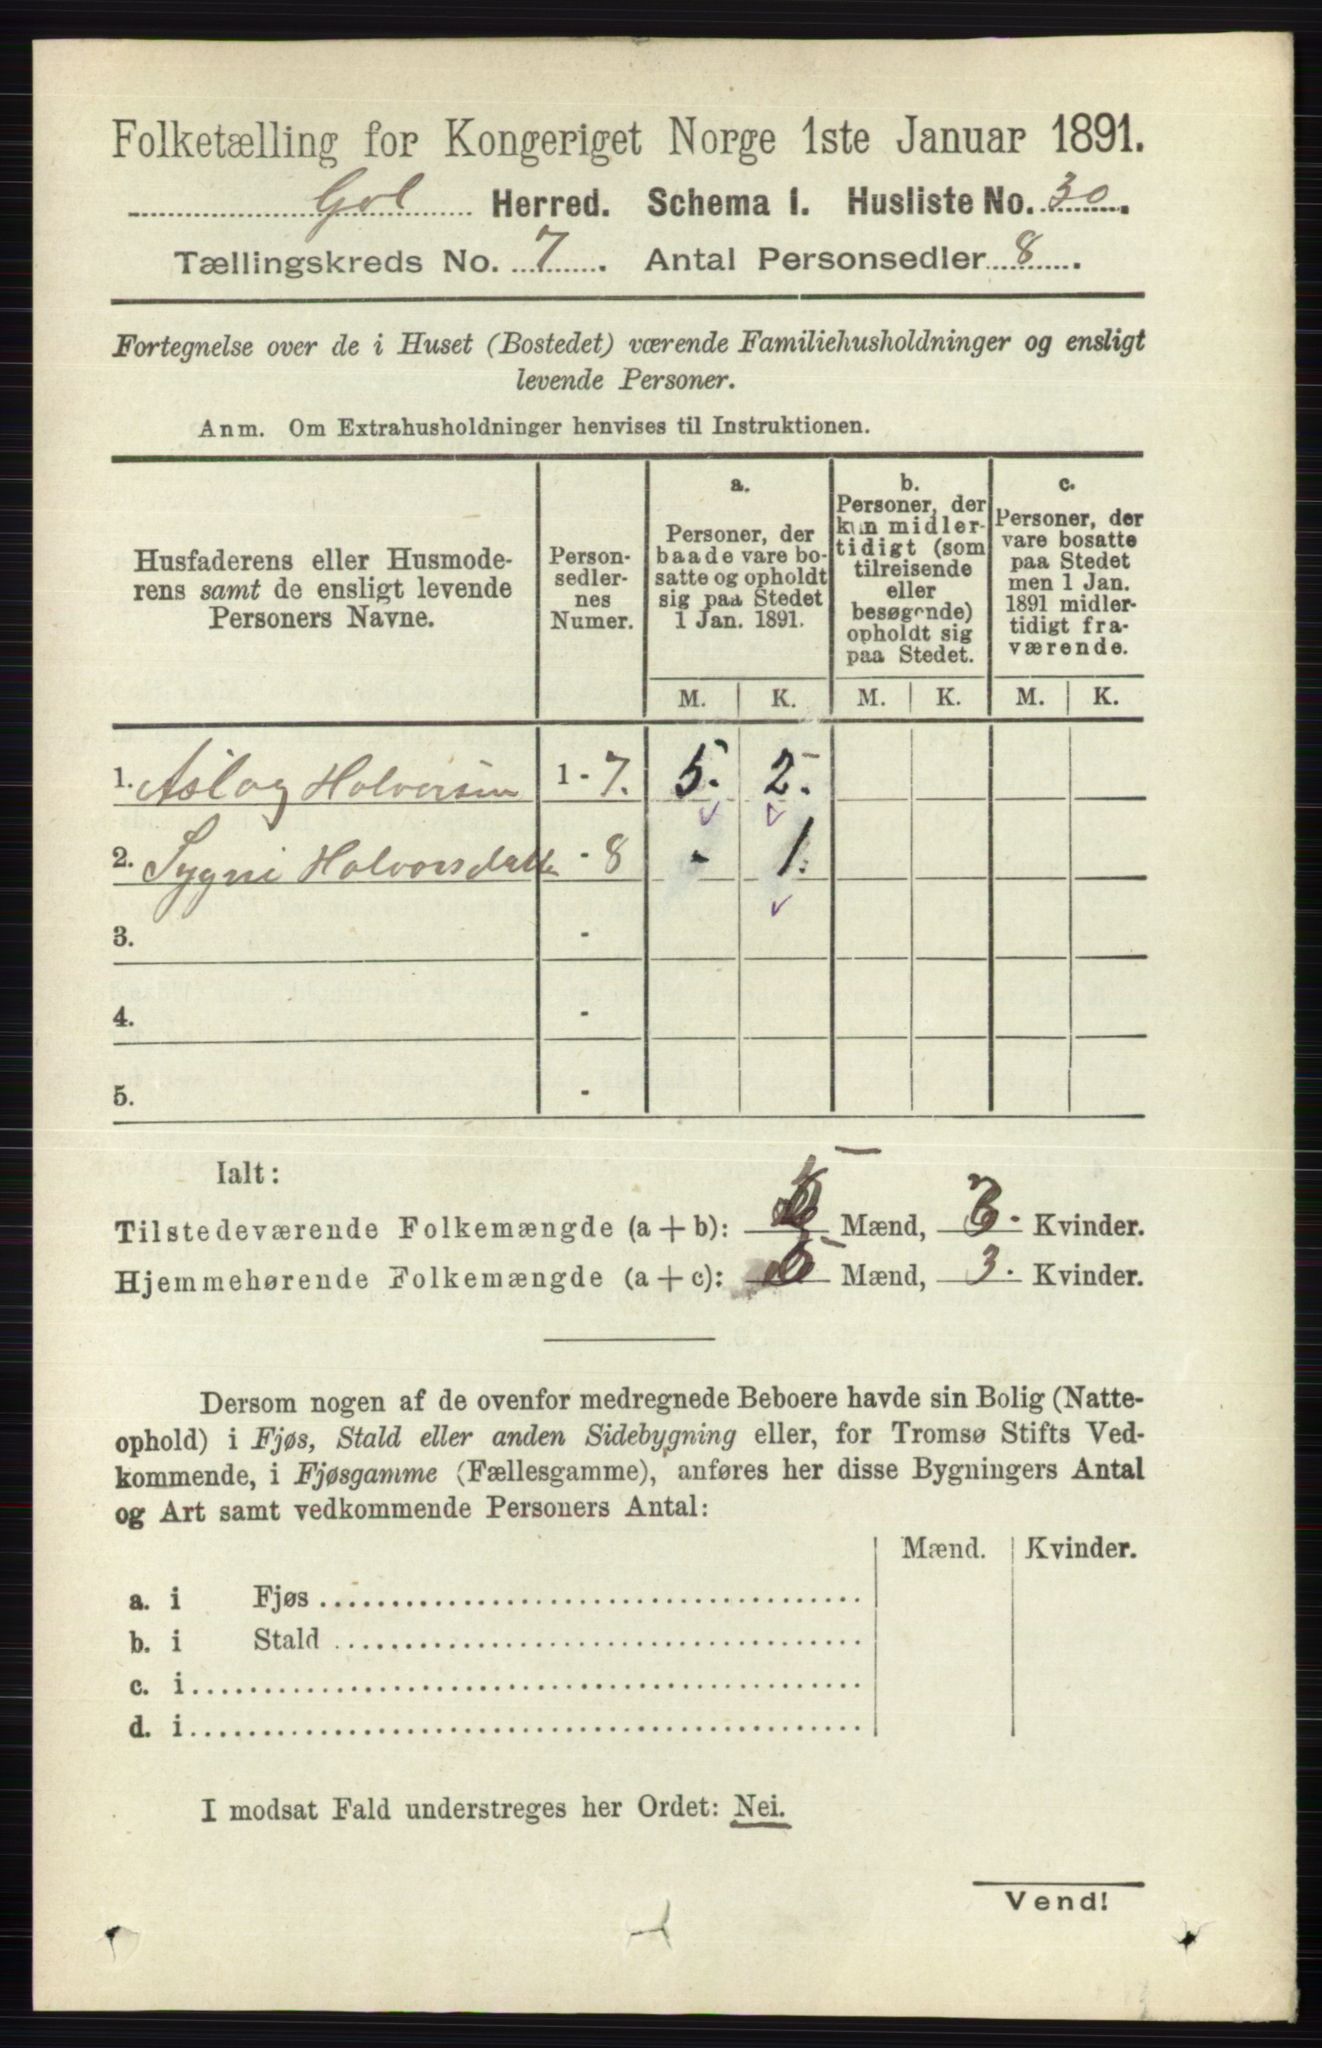 Folketælling for Kongeriget Norge 1ste Januar 1891.
Gol Herred. Schema 1. Husliste No. 30.
Tællingskreds No. 7. Antal Personsedler 8.
Fortegnelse over de i Huset (Bostedet) værende Familiehusholdninger og ensligt
levende Personer.
Anm. Om Extrahusholdninger henvises til Instruktionen.
Husfaderens eller Husmode-
rens samt de ensligt levende
Personers Navne.
Person-
sedler-
nes
Numer.
a.
Personer, der
baade vare bo-
satte og opholdt
sig paa Stedet
1 Jan. 1891.
b.
Personer, der
kun midler-
tidigt (som
tilreisende
eller
besøgende)
opholdt sig
paa Stedet.
c.
Personer, der
vare bosatte
paa Stedet
men 1 Jan.
1891 midler-
tidigt fra-
værende.
M. K. M. K. M. K.
1. Aslag Halvorsen 1 - 7. 5. 2.
2. Sygni Halvorsdatter - 8 - 1.
3. -
4. -
5. -
Ialt:
Tilstedeværende Folkemængde (a + b): Mænd, 3. Kvinder.
Hjemmehørende Folkemængde (a + c): 5 Mænd, 3. Kvinder.
Dersom nogen af de ovenfor medregnede Beboere havde sin Bolig (Natte-
ophold) i Fjøs, Stald eller anden Sidebygning eller, for Tromsø Stifts Ved-
kommende, i Fjøsgamme (Fællesgamme), anføres her disse Bygningers Antal
og Art samt vedkommende Personers Antal:
Mænd. Kvinder.
a. i Fjøs
b. i Stald
c. i
d. i
I modsat Fald understreges her Ordet: Nei.
Vend!